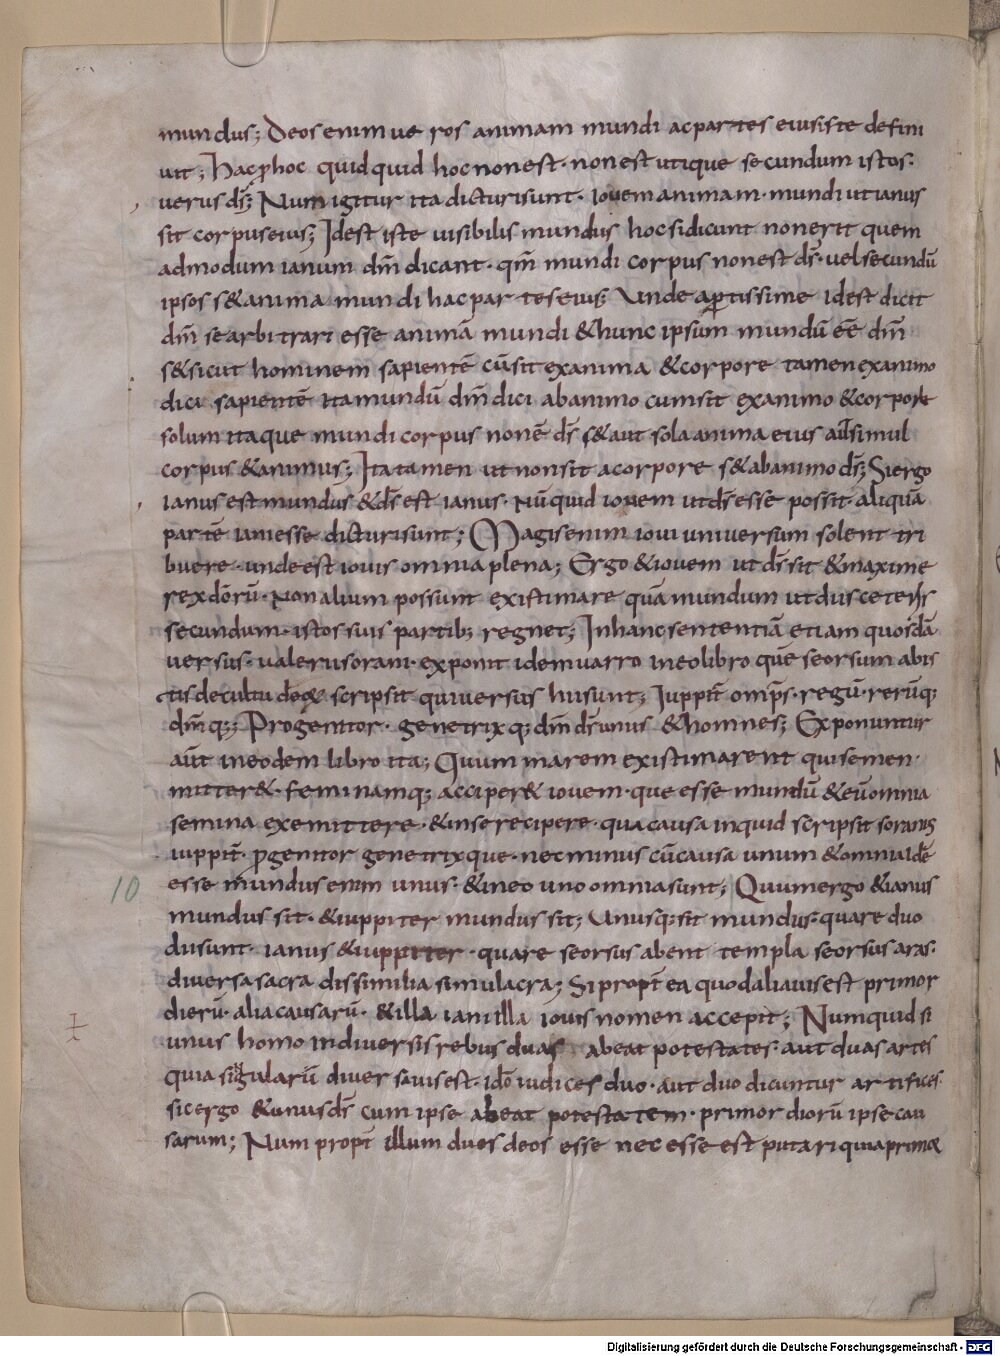 mundus; Deos enim ueros animam mundi ac partes eius iste defini
uit; Hac phoc quidquid hoc non est· non est utique secundum istos·
uerus dš; Num igitur ita dicturi sunt· iouem animam· mundi ut ianus
sit corpus eius; Id est iste uisibilis mundus hoc si dicunt non erit quem
admodum ianum dm̄ dicant· qm̄ mundi corpus non est dš· uel secundū
ipsos s& anima mundi hac partes eius; Unde aptissime idest dicit
dm̄ se arbitrari esse animā mundi & hunc ipsum mundū eē dm̄
s& sicut hominem sapientē cū sit ex anima & corpore tamen ex animo
dici sapientē ita mundū dm̄ dici ab animo cum sit ex animo & corpore
solum itaque mundi corpus non ē dš s& aut sola anima eius aut simul
corpus & animus; Ita tamen ut non sit a corpore s& ab animo dš; Si ergo
ianus est mundus & dš est ianus· Nūquid iouem ut dš esse possit· aliquā
partē iani esse dicturi sunt; Magis enim ioui uniuersum solent tri
buere· unde est iouis omnia plena; Ergo & iouem ut dš sit & maxime
rex dōrū· Non alium possunt existimare quā mundum ut diis ceteris
secundum· istos suis partib; regnet; In hanc sententiā etiam quosdā
uersus· ualerii sorani· exponit idem uarro in eo libro quē seorsum ab is
tis de cultu deoꝝ scripsit qui uersus hi sunt; Iuppit̄ omp̄s· regū· rerūq;
dm̄q;; Progenitor· genetrixq; dm̄ dš unus & homnes; Exponuntur
aūt in eodem libro ita; Quum marem existimarent qui semen·
mitter&· feminamq; acciper& iouem· que esse mundū & eū omnia
semina ex emittere· & in se recipere· qua causa inquid scripsit soranus
iuppit̄· pgenitor genetrixque· nec minus cū causa unum & omnia idē
esse mundus enim unus· & in eo uno omnia sunt; Quum ergo & ianus
10
mundus sit· & iuppiter mundus sit; Unusq; sit mundus· quare duo
du sunt· ianus & iuppitter· quare seorsus abent templa seorsus aras·
diuersa sacra dissimilia simulacra; Si propt̄ ea quod alia uis est primor
dierū· alia causarū· & illa iani illa iouis nomen accepit; Numquid si
unus homo in diuersis rebus duas abeat potestates· aut duas artes
quia singularū diuersa uis est· idō iudices duo· aut duo dicuntur artifices·
sic ergo & unus dš cum ipse abeat potestatem· primordiorū ipse cau
sarum; Num propt̄ illum duos deos esse necesse est putari quia primor
Digitalisierung gefördert durch die Deutsche Forschungsgemeinschaft - DFG